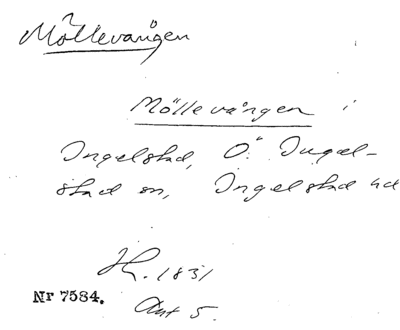 Möllevången
Möllevången i
Ingelstad, Ö. Ingel-
stad sn, Ingelstad hd
H. 1831
Akt 5.
Nr 7584.